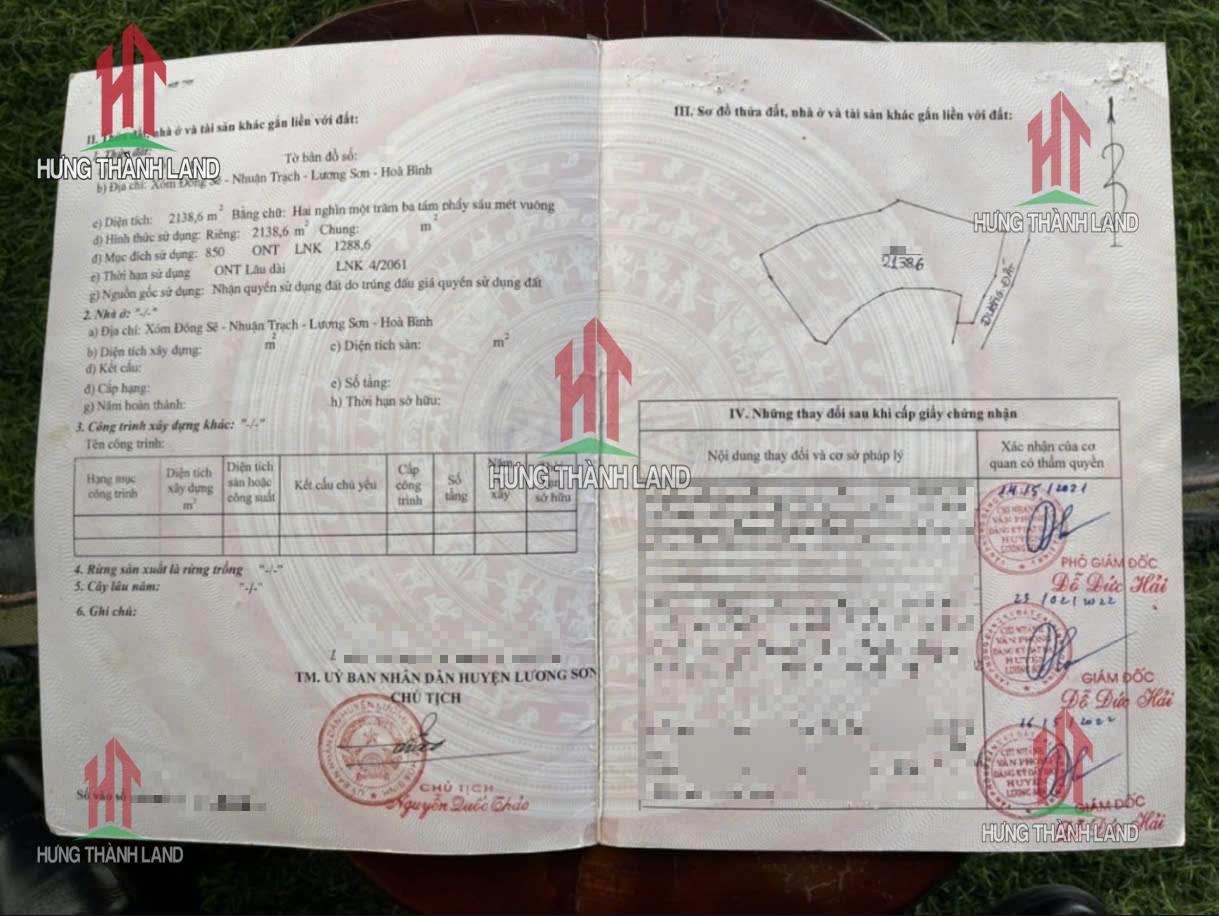 HƯNG THÀNH LAND
II. Thửa đất, nhà ở và tài sản khác gắn liền với đất:
1. Thửa đất:
Tờ bản đồ số:
b) Địa chỉ: Xóm Đồng Sẽ - Nhuận Trạch - Lương Sơn - Hoà Bình
c) Diện tích: 2138,6 m² Bằng chữ: Hai nghìn một trăm ba tám phẩy sáu mét vuông
d) Hình thức sử dụng: Riêng: 2138,6 m² Chung: m²
đ) Mục đích sử dụng: 850 ONT LNK 1288,6
e) Thời hạn sử dụng ONT Lâu dài LNK 4/2061
g) Nguồn gốc sử dụng: Nhận quyền sử dụng đất do trúng đấu giá quyền sử dụng đất
2. Nhà ở: "-/-"
a) Địa chỉ: Xóm Đồng Sẽ - Nhuận Trạch - Lương Sơn - Hoà Bình
b) Diện tích xây dựng: m² c) Diện tích sàn: m²
d) Kết cấu:
đ) Cấp hạng: e) Số tầng:
g) Năm hoàn thành: h) Thời hạn sở hữu:
3. Công trình xây dựng khác: "-/-"
Tên công trình:
Hạng mục công trình
Diện tích xây dựng m²
Diện tích sàn hoặc công suất
Kết cấu chủ yếu
Cấp công trình
Số tầng
Năm xây
sở hữu
4. Rừng sản xuất là rừng trồng "-/-"
5. Cây lâu năm: "-/-"
6. Ghi chú:
TM. UỶ BAN NHÂN DÂN HUYỆN LƯƠNG SƠN
CHỦ TỊCH
CHỦ TỊCH
Nguyễn Quốc Thảo
Số vào sổ
HƯNG THÀNH LAND
III. Sơ đồ thửa đất, nhà ở và tài sản khác gắn liền với đất:
HƯNG THÀNH LAND
2138.6
ĐƯỜNG ĐẤT
HƯNG THÀNH LAND
IV. Những thay đổi sau khi cấp giấy chứng nhận
Nội dung thay đổi và cơ sở pháp lý
Xác nhận của cơ quan có thẩm quyền
14/5/2021
PHÓ GIÁM ĐỐC
Đỗ Đức Hải
23/02/2022
GIÁM ĐỐC
Đỗ Đức Hải
16/5/2022
GIÁM ĐỐC
Đỗ Đức Hải
HƯNG THÀNH LAND